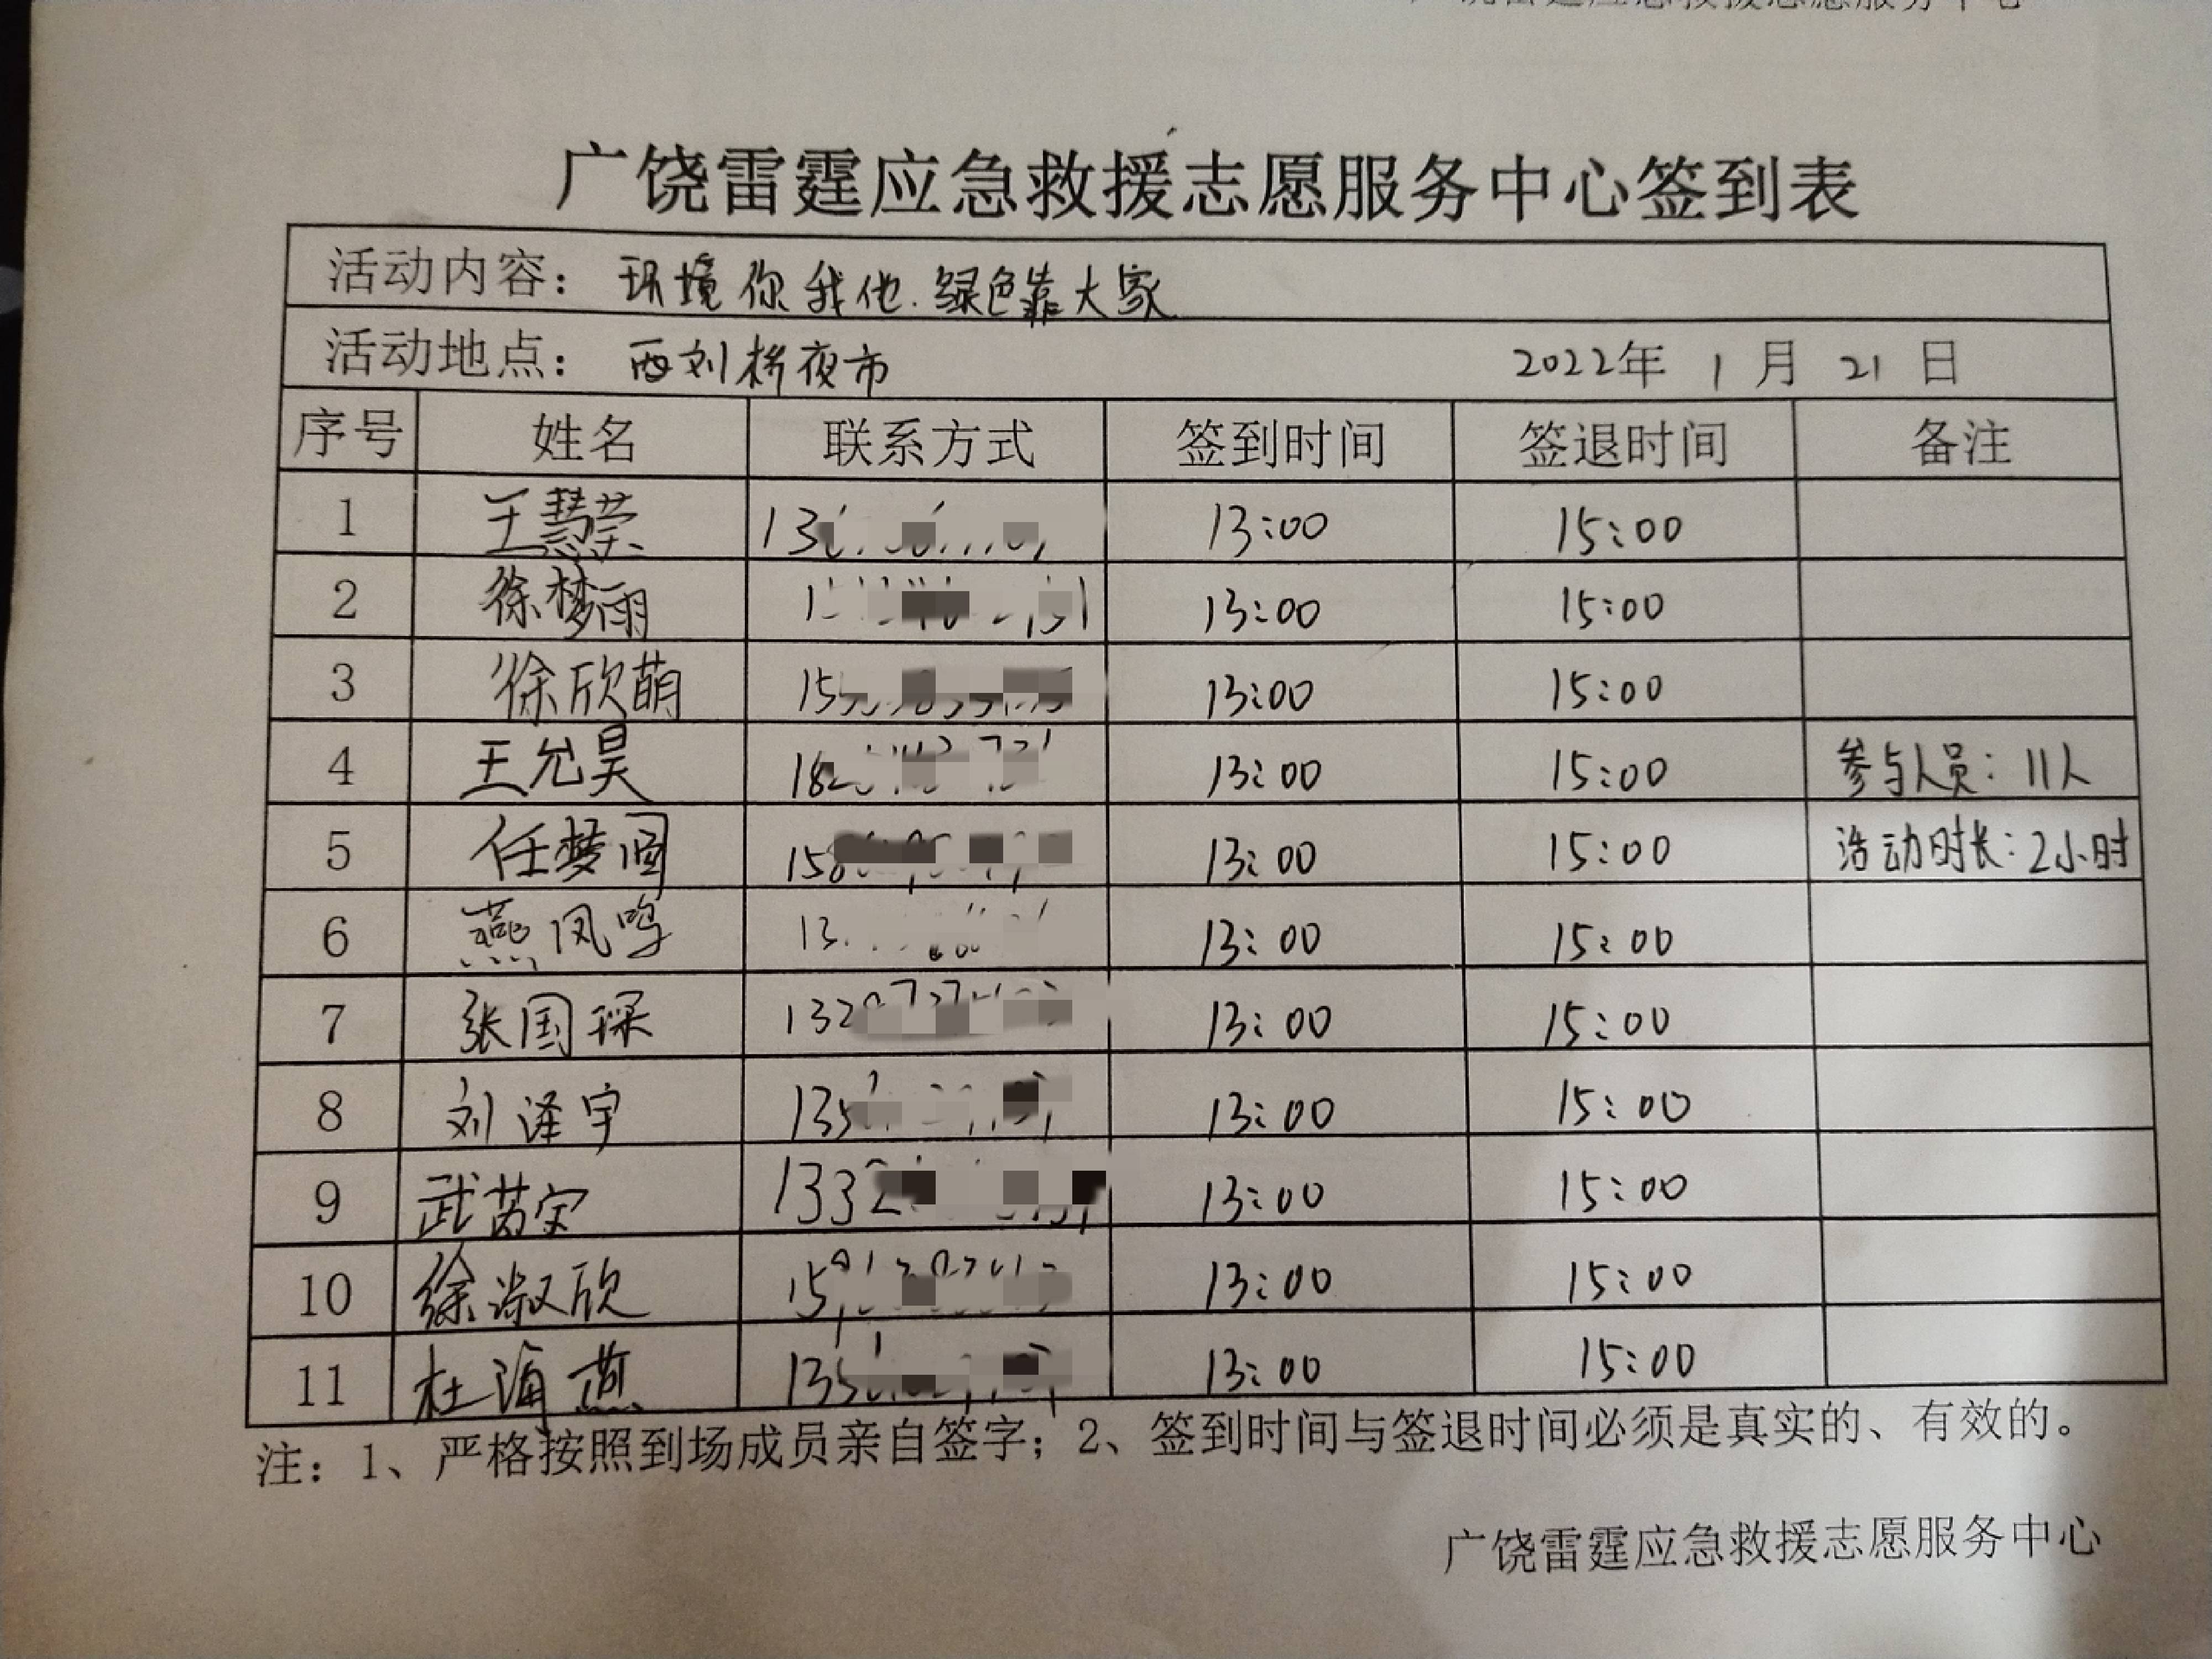 广饶雷霆应急救援志愿服务中心
广饶雷霆应急救援志愿服务中心签到表
活动内容: 环境你我他.绿色靠大家
活动地点: 西刘桥夜市 2022年 1 月 21 日
序号 姓名 联系方式 签到时间 签退时间 备注
1 王慧荣 13 13:00 15:00
2 徐梦雨 13:00 15:00
3 徐欣萌 15 13:00 15:00
4 王允昊 18 13:00 15:00 参与人员: 11人
5 任梦圆 15 13:00 15:00 活动时长: 2小时
6 燕凤鸣 13 13:00 15:00
7 张国琛 132 13:00 15:00
8 刘泽宇 135 13:00 15:00
9 武茵宁 1332 13:00 15:00
10 徐淑欣 15 13:00 15:00
11 杜海燕 135 13:00 15:00
注: 1、严格按照到场成员亲自签字; 2、签到时间与签退时间必须是真实的、有效的。
广饶雷霆应急救援志愿服务中心